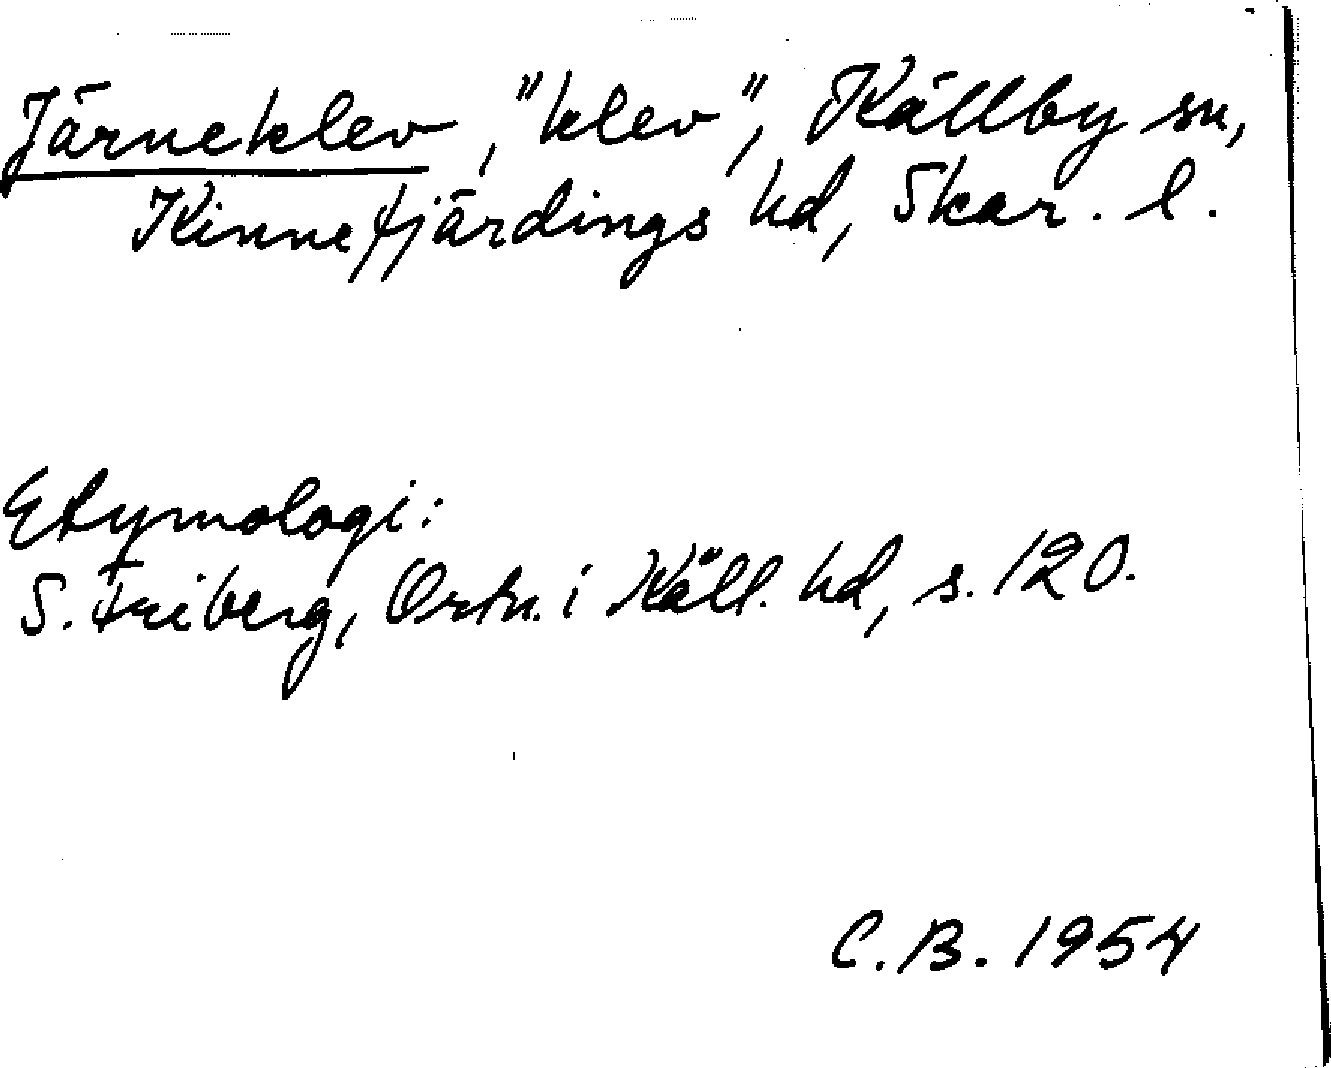 Järneklev, "klev", Källby sn,
Kinnefjärdings hd, Skar. l.
Etymologi:
S. Friberg, Ortn. i Kåll. hd, s. 120.
C.B. 1954